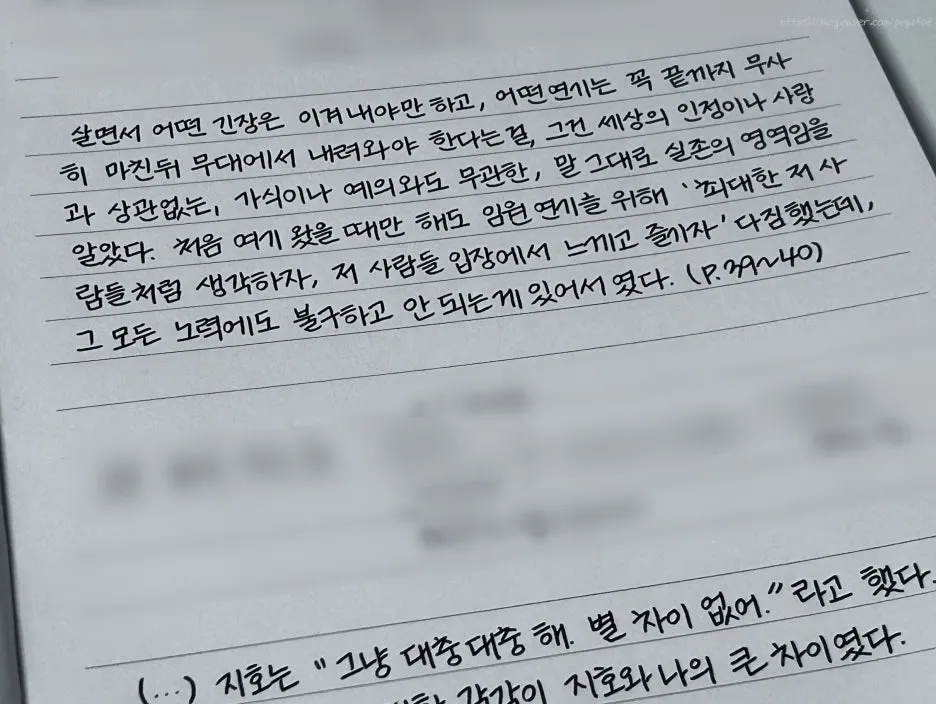 살면서 어떤 긴장은 이겨내야만 하고, 어떤연기는 꼭 끝까지 무사
히 마친뒤 무대에서 내려와야 한다는걸, 그건 세상의 인정이나 사랑
과 상관없는, 가식이나 예의와도 무관한, 말 그대로 실존의 영역임을
알았다. 처음 여기 왔을 때만 해도 임원 연기를 위해 '최대한 저 사
람들처럼 생각하자, 저 사람들 입장에서 느끼고 즐기자' 다짐했는데,
그 모든 노력에도 불구하고 안 되는게 있어서 였다. (P.39~40)
(...) 지호는 "그냥 대충대충 해. 별 차이 없어." 라고 했다.
각각이 지호와 나의 큰 차이였다.